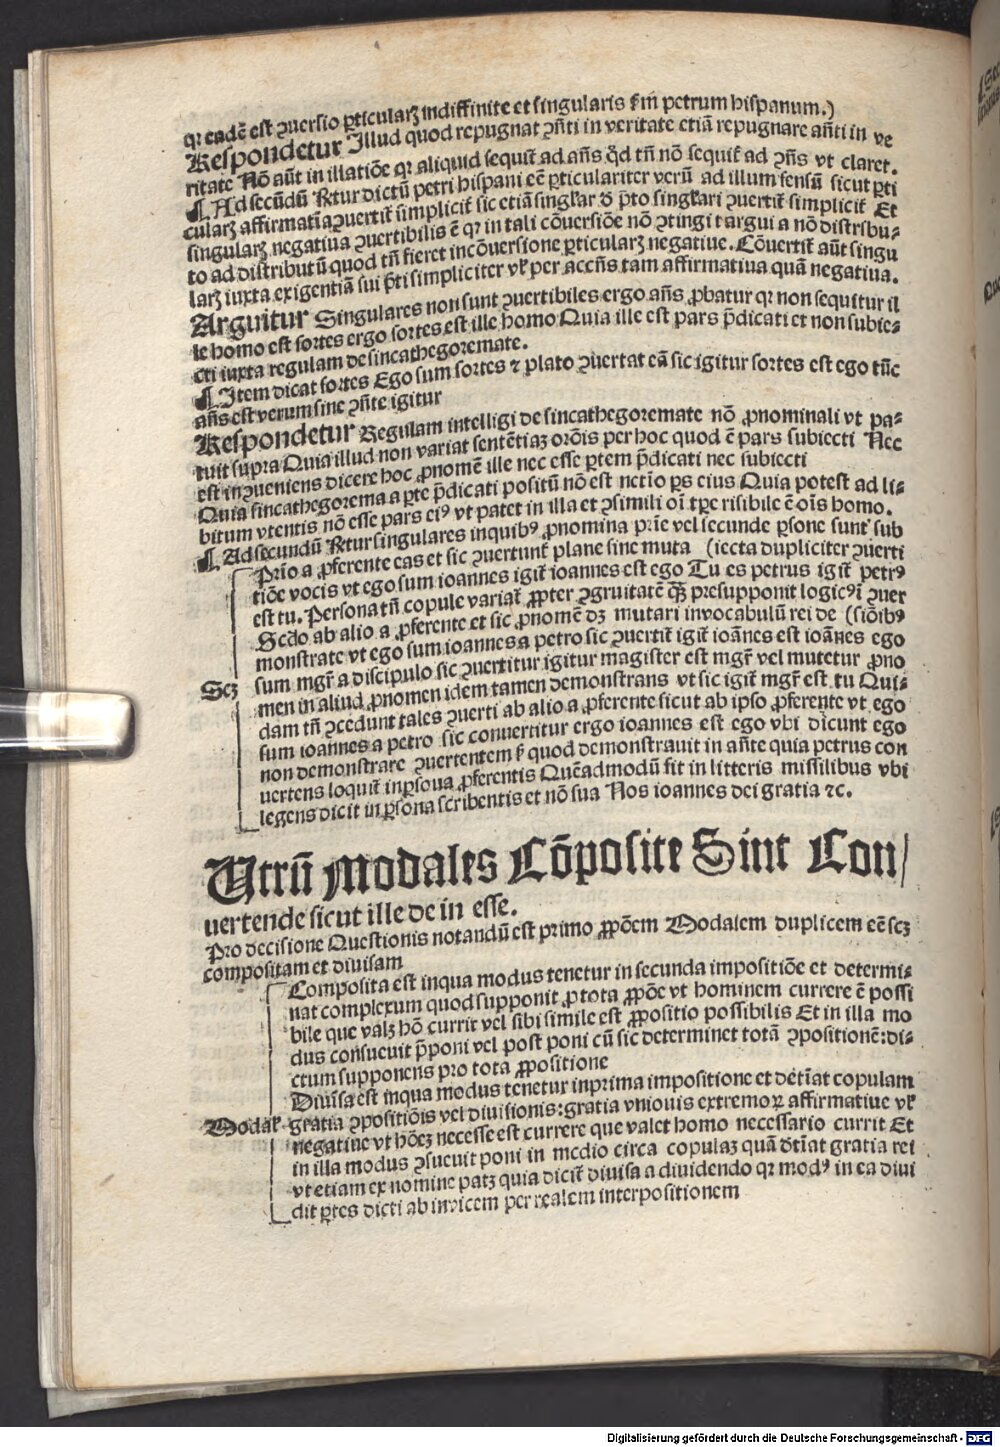 qꝛ eadē est ꝯuersio ꝑticularꝫ indiffinite et singularis ẜm petrum hispanum.)
Respondetur Illud quod repugnat ꝯñti in veritate etiā repugnare añti in ve
ritate Nō aūt in illatiōe qꝛ aliquid sequit̃ ad añs qd̃ tñ nō sequit̃ ad ꝯñs vt claret.
¶ Ad secūdū dictū petri hispani eē ꝑticulariter verū ad illum sensū sicut ꝑti
cularꝫ affirmatīa ꝯuertit̃ simplicit̃ sic etiā singlar̃ ꝓto singlari ꝯuertit̃ simplicit̃ Et
singularꝫ negatiua ꝯuertibilis ē qꝛ in tali cōuersiōe nō ꝯtingit argui a nō distribu⸗
to ad distributū quod tñ fieret incōuersione ꝑticularꝫ negatiue. Cōuertit̃ aūt singu
larꝫ iuxta exigentiā sui p̄ti simpliciter vl̓ per accñs tam affirmatiua quā negatiua.
Arguitur Singulares non sunt ꝯuertibiles ergo añs ꝓbatur qꝛ non sequitur il
le homo est sortes ergo sortes est ille homo Quia ille est pars p̄dicati et non subie⸗
cti iuxta regulam de sincathegoremate.
¶ Item dicat sortes Ego sum sortes ⁊ plato ꝯuertat eā sic igitur sortes est ego tūc
añs est verum sine ꝯñte igitur
Respondetur Regulam intelligi de sincathegoremate nō ꝓnominali vt pa⸗
tuit supra Quia illud non variat sentētiaꝫ orōis per hoc quod ē pars subiecti Nec
est inꝯueniens dicere hoc ꝓnomē ille nec esse ꝑtem p̄dicati nec subiecti
Quia sincathegorema a ꝑte p̄dicati positū nō est ꝑs eius Quia potest ad li⸗
bitum vtentis nō esse pars eiꝰ vt patet in illa et ꝯsimili oī tꝑe risibile ē oīs homo.
¶ Ad secundū singulares inquibꝰ ꝓnomina prīe vel secunde ꝑsone sunt sub
Prīo a ꝓferente eas et sic ꝯuertunt̃ plane sine muta (iecta dupliciter ꝯuerti
tiōe vocis vt ego sum ioannes igit̃ ioannes est ego Tu es petrus igit̃ petrꝰ
est tu. Persona tñ copule variat̃ ꝓpter ꝯgruitatē presupponit logicꝰ ī ꝯuer
Secdo ab alio a ꝓferente et sic ꝓnomē dꝫ mutari invocabulū rei de (siōibꝰ
monstrate vt ego sum ioannes a petro sic ꝯuertit̃ igit̃ ioānes est ioānes ego
sum mgr̃ a discipulo sic ꝯuertitur igitur magister est mgr̃ vel mutetur ꝓno
Scꝫ
men in aliud ꝓnomen idem tamen demonstrans vt sic igit̃ mgr̃ est tu Qui⸗
dam tñ ꝯcedunt tales ꝯuerti ab alio a ꝓferente sicut ab ipso ꝓferente vt ego
sum ioannes a petro sic conuertitur ergo ioannes est ego vbi dicunt ego
non demonstrare ꝯuertentem sꝫ quod demonstrauit in añte quia petrus con
uertens loquit̃ inꝑsona ꝓferentis Quēadmodū fit in litteris missilibus vbi
legens dicit in ꝑsona scribentis et nō sua Nos ioannes dei gratia ⁊c.
Vtrū Modales Cōposite Sint Con/
uertende sicut ille de in esse.
Pro decisione Questionis notandū est primo ꝓpōem Modalem duplicem eē scꝫ
compositam et diuisam
Composita est inqua modus tenetur in secunda impositiōe et determi⸗
nat complexum quod supponit ꝓ tota ꝓpōe vt hominem currere ē possi
bile que valꝫ hō currit vel sibi simile est ꝓpositio possibilis Et in illa mo
dus consueuit p̄poni vel post poni cū sic determinet totā ꝯpositionē: di⸗
ctum supponens pro tota ꝓpositione
Diuisa est inqua modus tenetur inprima impositione et det̄iat copulam
Modal̓
gratia ꝯpositiōis vel diuisionis: gratia vniouis extremoꝝ affirmatiue vl̓
negatiue vt hōeꝫ necesse est currere que valet homo necessario currit Et
in illa modus ꝯsueuit poni in medio circa copulaꝫ quā dt̄iat gratia rei
vt etiam ex nomine patꝫ quia dicit̃ diuisa a diuidendo qꝛ modꝰ in ea diui
dit ꝑtes dicti ab inuicem per realem interpositionem
Digitalisierung gefördert durch die Deutsche Forschungsgemeinschaft - DFG